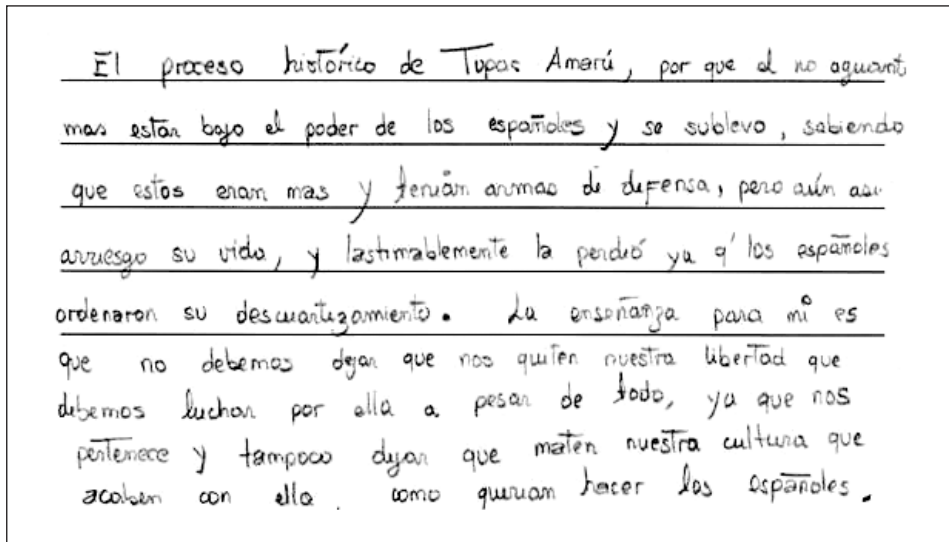 El proceso histórico de Tupac Amarú, por que el no aguant
mas están bajo el poder de los españoles y se sublevo, sabiendo
que estos eran mas y tenián armas de defensa, pero aún asi
arriesgo su vida, y lastimablemente la perdió ya q' los españoles
ordenaron su descuartizamiento. La enseñanza para mi es
que no debemos dejar que nos quiten nuestra libertad que
debemos luchar por ella a pesar de todo, ya que nos
pertenece y tampoco dejar que maten nuestra cultura que
acaben con ella. como querian hacer los españoles.